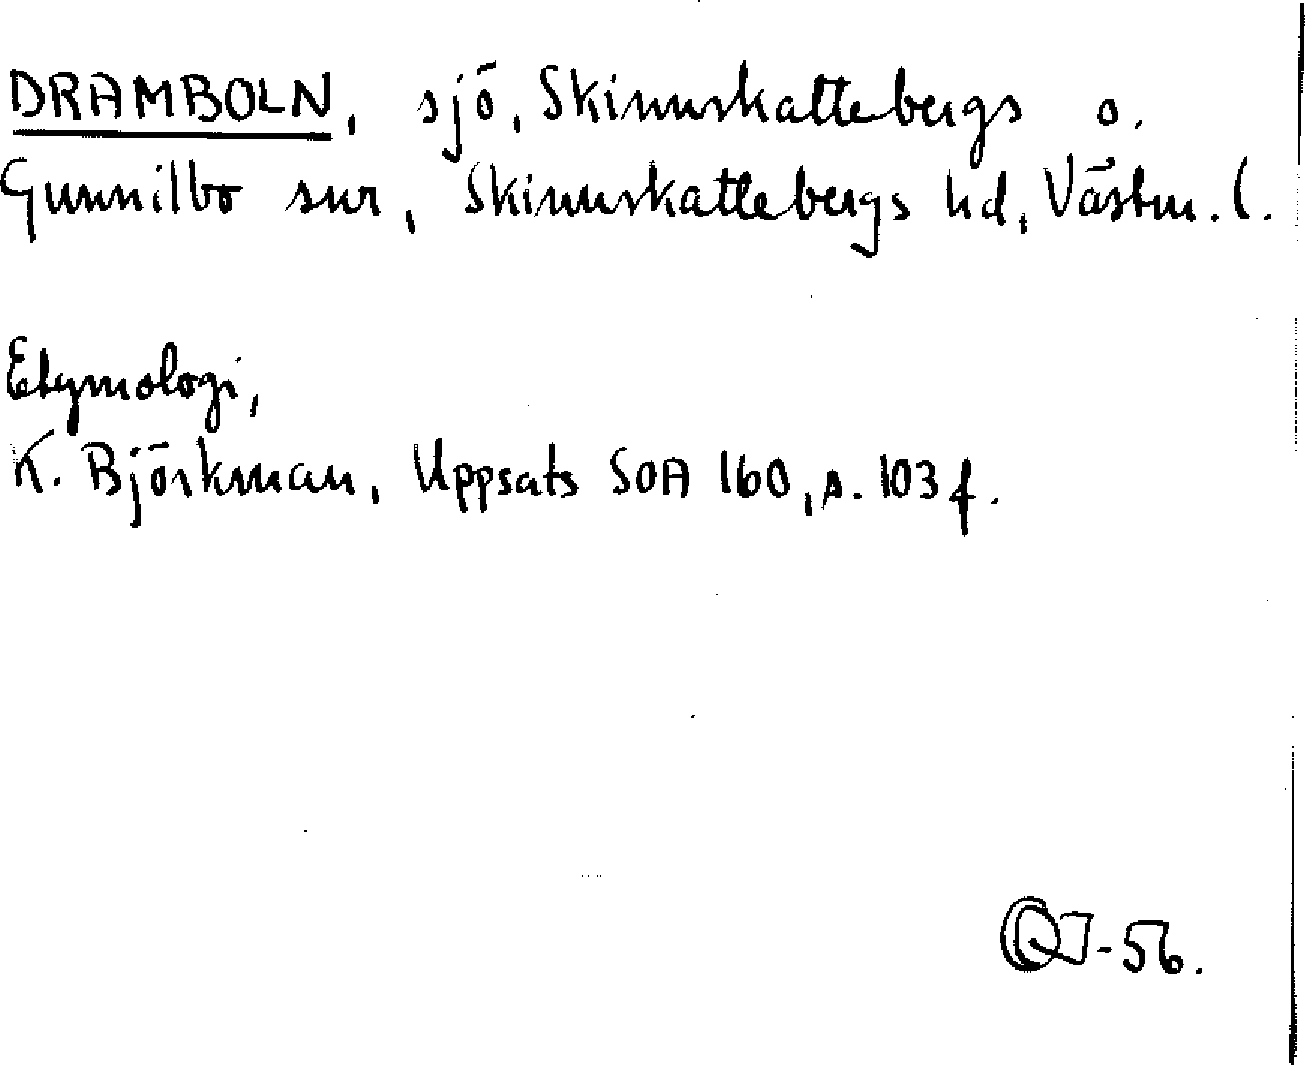 DRAMBOLN, sjö, Skinnskattebergs o.
Gunnilbo snr, Skinnskattebergs hd, Västm. l.
Etymologi,
K. Björkman, Uppsats SOA 160, s. 103 f.
-56.